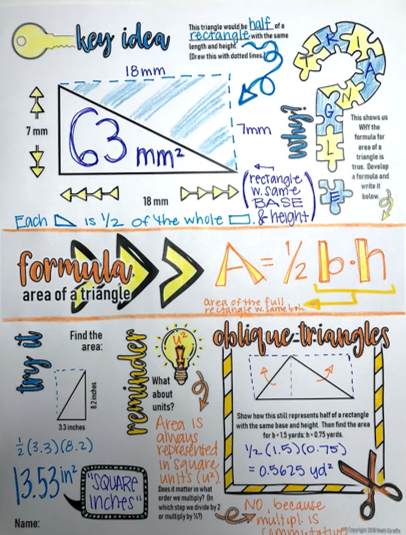 key idea
This triangle would be half of a
rectangle with the same
length and height.
(Draw this with dotted lines.)
18mm
7 mm
63 mm²
7mm
18 mm
(rectangle
w. same
BASE
& height)
Each is 1/2 of the whole
Why?
TRIANGLE
This shows us
WHY the
formula for
area of a
triangle is
true. Develop
a formula and
write it
below.
formula
area of a triangle
A = 1/2 b·h
area of the full
rectangle w. same b·h
try it
Find the
area:
8.2 inches
3.3 inches
1/2 (3.3)(8.2)
13.53 in²
"SQUARE
inches"
Name:
reminder
u²
What
about
units?
Area is
always
represented
in square
units (u²).
Does it matter in what
order we multiply? (In
which step we divide by 2
or multiply by ½?)
NO, because
multipl. is
commutative
oblique triangles
Show how this still represents half of a rectangle
with the same base and height. Then find the area
for b = 1.5 yards: h = 0.75 yards.
1/2 (1.5)(0.75)
= 0.5625 yd²
Copyright 2018 Math Giraffe